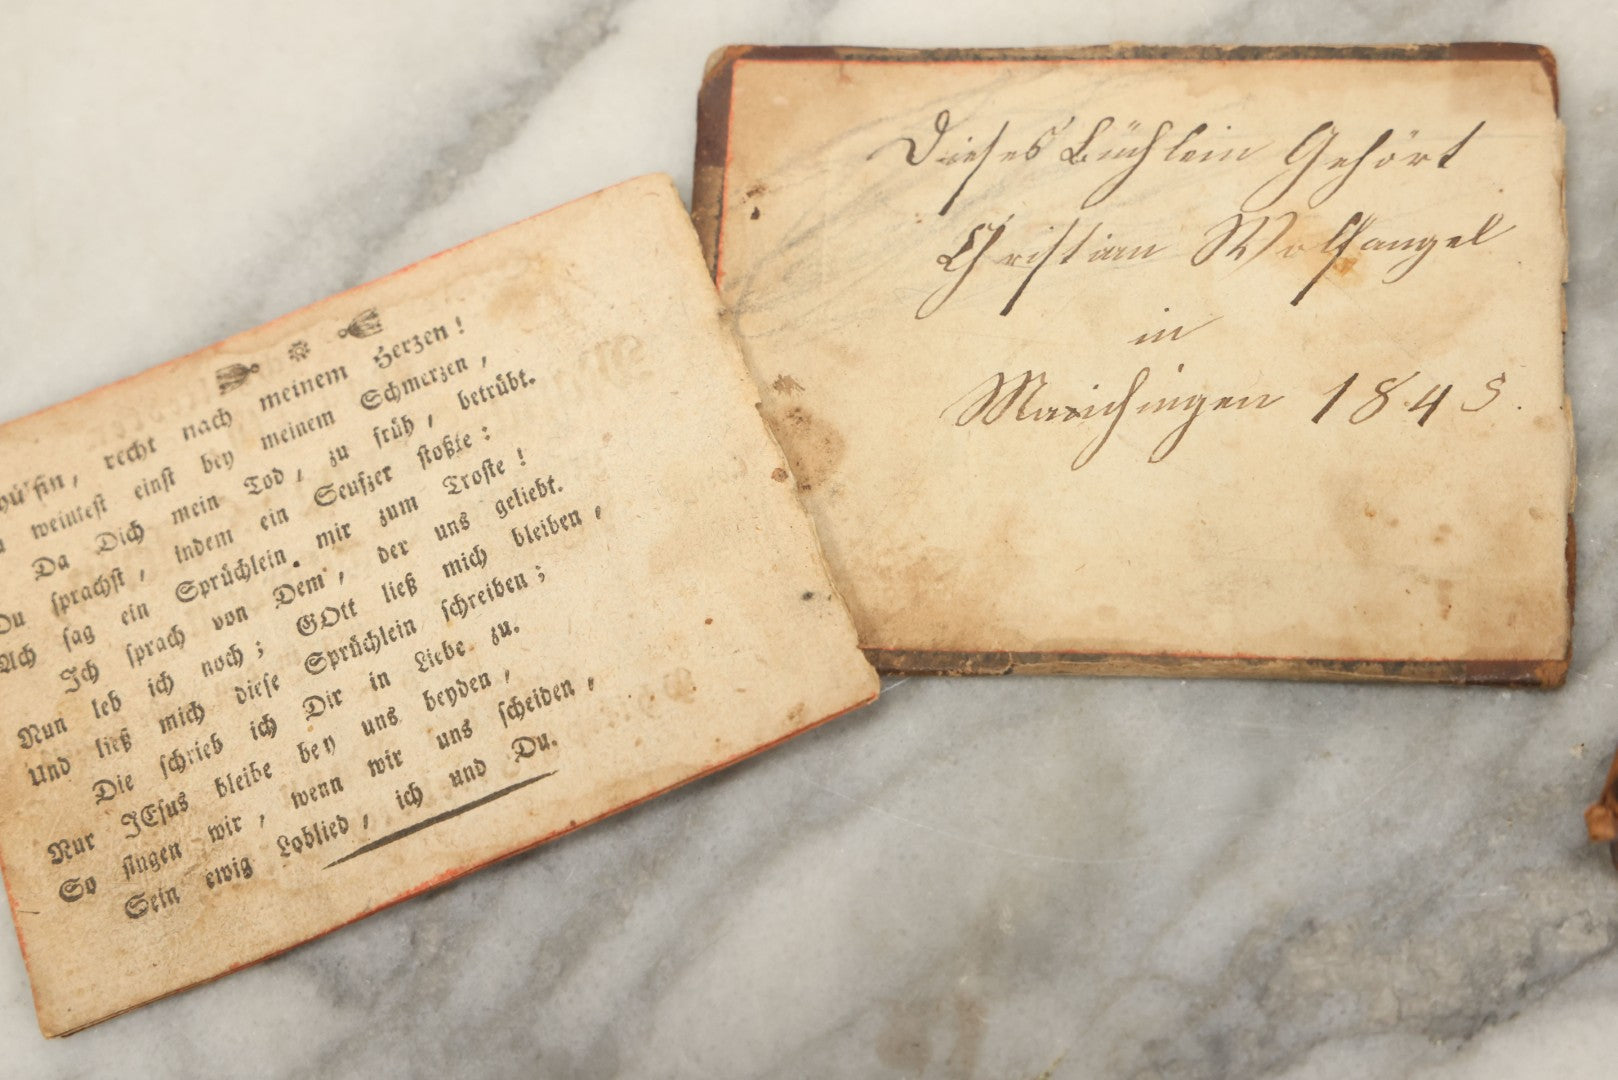 recht nach meinem Herzen!
weintest einst bey meinem Schmerzen,
Da Dich mein Tod, zu früh, betrübt.
Du sprachst, indem ein Seufzer stoßte:
Ach sag ein Sprüchlein. mir zum Troste!
Ich sprach von Dem, der uns geliebt.
Nun leb ich noch; GOtt ließ mich bleiben,
Und ließ mich diese Sprüchlein schreiben;
Die schrieb ich Dir in Liebe zu.
Nur JEsus bleibe bey uns beyden,
So singen wir, wenn wir uns scheiden,
Sein ewig Loblied, ich und Du.
Dieses Büchlein Gehört
Christian Wolfangel
in
Maichingen 1845.